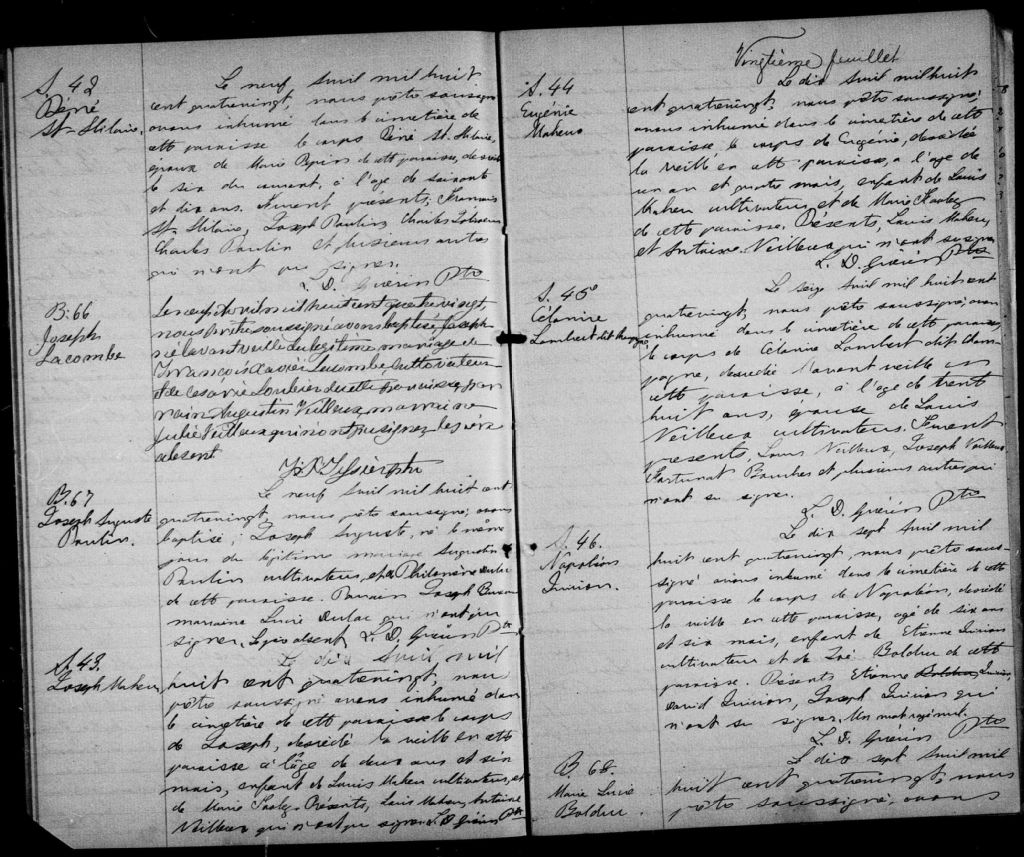 S. 42
René
St. Hilaire.
Le neuf Avril mil huit
cent quatrevingt, nous prêtre soussigné
avons inhumé dans le cimetière de
cette paroisse le corps René St. Hilaire,
époux de Marie de cette paroisse, décédé
le six du courant, à l'age de soixante
et dix ans. Furent présents; Francois
St. Hilaire, Joseph Poulin, Charles
Charles Poulin et plusieurs autres
qui n'ont pu signer.
L. D. Guérin Ptre
B. 66
Joseph
Lacombe
Le neuf Avril mil huit cent quatre vingt,
nous prêtre soussigné avons baptisé Joseph
né l'avant veille du légitime mariage de
Francois Xavier Lacombe, cultivateur
et de Césarie Loubier de cette paroisse, par
rain Augustin Veilleux, marraine
Julie Veilleux qui n'ont pu signer, le père
absent
Ptre
B. 67
Joseph Auguste
Poulin.
Le neuf Avril mil huit cent
quatrevingt, nous prêtre soussigné, avons
baptisé, Joseph Auguste, né le même
jour du légitime mariage Augustin
Poulin cultivateur, et de Philomène Dulac
de cette paroisse. Parrain Joseph
marraine Lucie Dulac qui n'ont pu
signer. Le père absent L. D. Guérin Ptre
S. 43.
Joseph Maheu
Le dix Avril mil
huit cent quatrevingt, nous
prêtre soussigné avons inhumé dans
le cimetière de cette paroisse le corps
de Joseph, décédé la veille en cette
paroisse à l'âge de deux ans et six
mois, enfant de Louis Maheu cultivateur, et
de Marie Fraley. Présents, Louis Maheu, Antoine
Veilleux qui n'ont pu signer. L. D. Guérin Ptre
Vingtième feuillet
S. 44
Eugénie
Maheux
Le dix Avril mil huit
cent quatrevingt, nous prêtre soussigné,
avons inhumé dans le cimetière de cette
paroisse le corps de Eugénie, décédée
la veille en cette paroisse, a l'age de
un an et quatre mois, enfant de Louis
Maheu cultivateur et de Marie Fraley
de cette paroisse. Présents, Louis Maheu,
et Antoine Veilleux qui n'ont su signer
L. D. Guérin Ptre
S. 45
Célanire
Lambert dit
Le seize Avril mil huit cent
quatrevingt, nous prêtre soussigné, avons
inhumé dans le cimetière de cette paroisse,
le corps de Célanire Lambert dit Cham-
pagne, décédée l'avant veille en
cette paroisse, à l'age de trent
huit ans, épouse de Louis
Veilleux cultivateur. Furent
présents, Louis Veilleux, Joseph Veilleux
Fortunat Boucher et plusieurs autres qui
n'ont su signer.
L. D. Guérin Ptre
S. 46.
Napoléon
Quirion.
Le dix sept Avril mil
huit cent quatrevingt, nous prêtre sous-
signé avons inhumé dans le cimetière de cette
paroisse le corps de Napoléon, décédé
la veille en cette paroisse, agé de six ans
et six mois, enfant de Etienne Quirion
cultivateur et de Zoé Bolduc de cette
paroisse. Présents Etienne Bolduc Quirion,
David Quirion, Joseph Quirion qui
n'ont su signer. Un mot rayé nul.
L. D. Guérin Ptre
B. 68.
Marie Lucie
Bolduc.
Le dix sept Avril mil
huit cent quatrevingt, nous
prêtre soussigné, avons